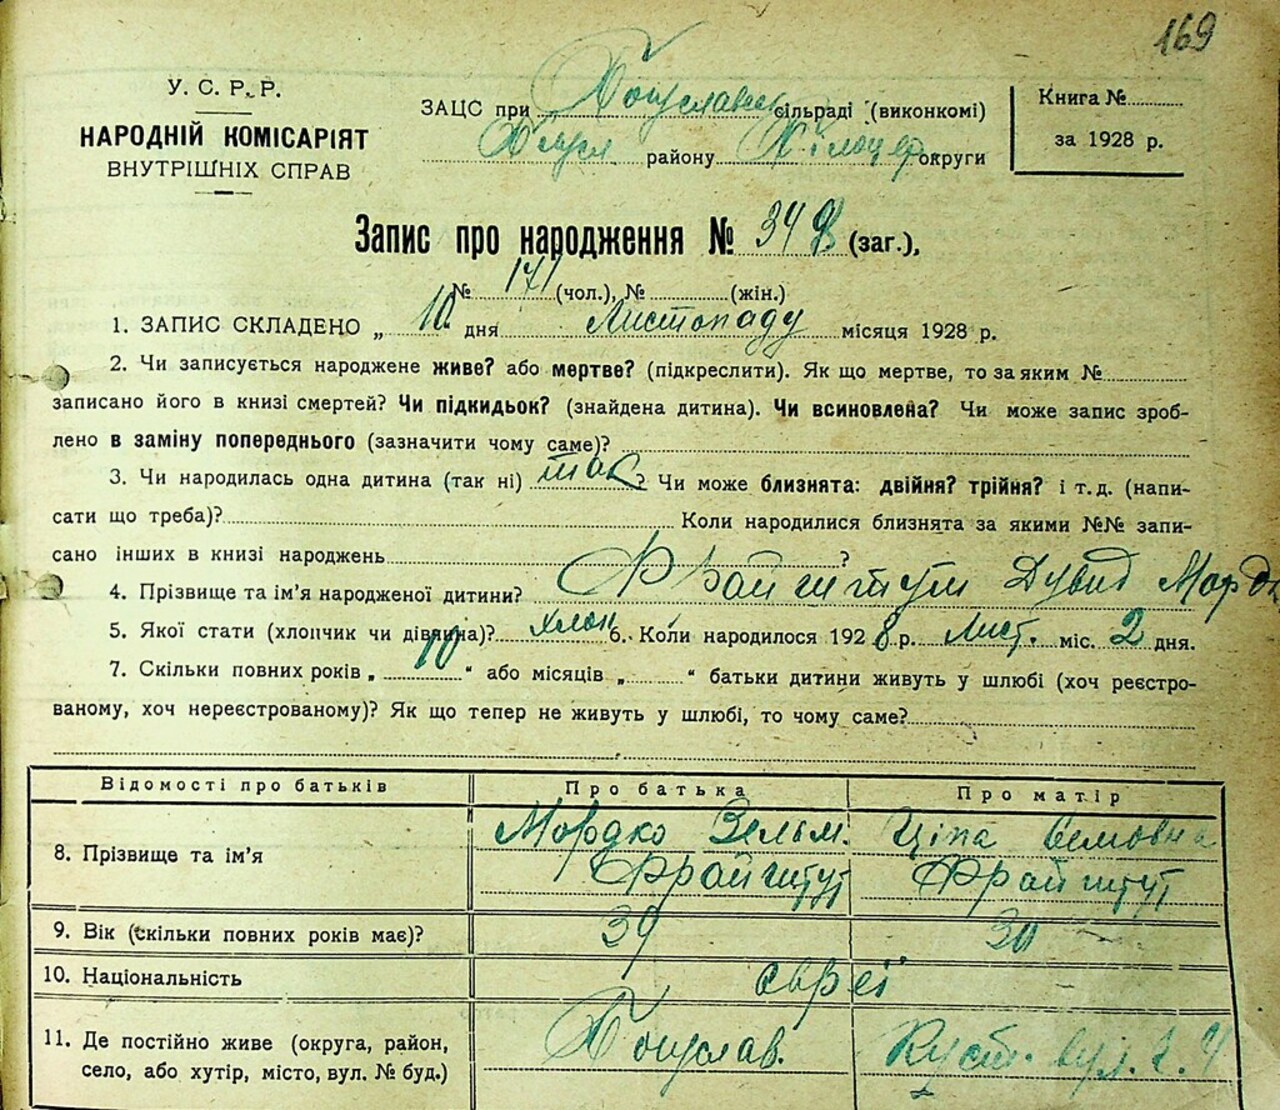 169
У. С. Р. Р.
НАРОДНІЙ КОМІСАРІЯТ
ВНУТРІШНІХ СПРАВ
ЗАЦС при Богуславськ сільраді (виконкомі)
Богусл району Білоцер округи
Книга №
за 1928 р.
Запис про народження № 348 (заг.),
№ 171 (чол.), № (жін.)
1. ЗАПИС СКЛАДЕНО „ 10 " дня Листопаду місяця 1928 р.
2. Чи записується народжене живе? або мертве? (підкреслити). Як що мертве, то за яким №
записано його в книзі смертей? Чи підкидьок? (знайдена дитина). Чи всиновлена? Чи може запис зроб-
лено в заміну попереднього (зазначити чому саме)?
3. Чи народилась одна дитина (так ні) так ? Чи може близнята: двійня? трійня? і т.д. (напи-
сати що треба)? Коли народилися близнята за якими №№ запи-
сано інших в книзі народжень ?
4. Прізвище та ім'я народженої дитини? Фрайштут Дувид Мордк
5. Якої стати (хлопчик чи дівчина)? хлоп 6. Коли народилося 1928 р. Лист. міс. 2 дня.
7. Скільки повних років „ 10 " або місяців „ " батьки дитини живуть у шлюбі (хоч реєстро-
ваному, хоч нереєстрованому)? Як що тепер не живуть у шлюбі, то чому саме?
Відомості про батьків Про батька Про матір
8. Прізвище та ім'я Мордко Зельм. Фрайштут Ціпа Фрайштут
9. Вік (скільки повних років має)? 39 30
10. Національність євреї
11. Де постійно живе (округа, район,
село, або хутір, місто, вул. № буд.) Богуслав. Куст. вул.